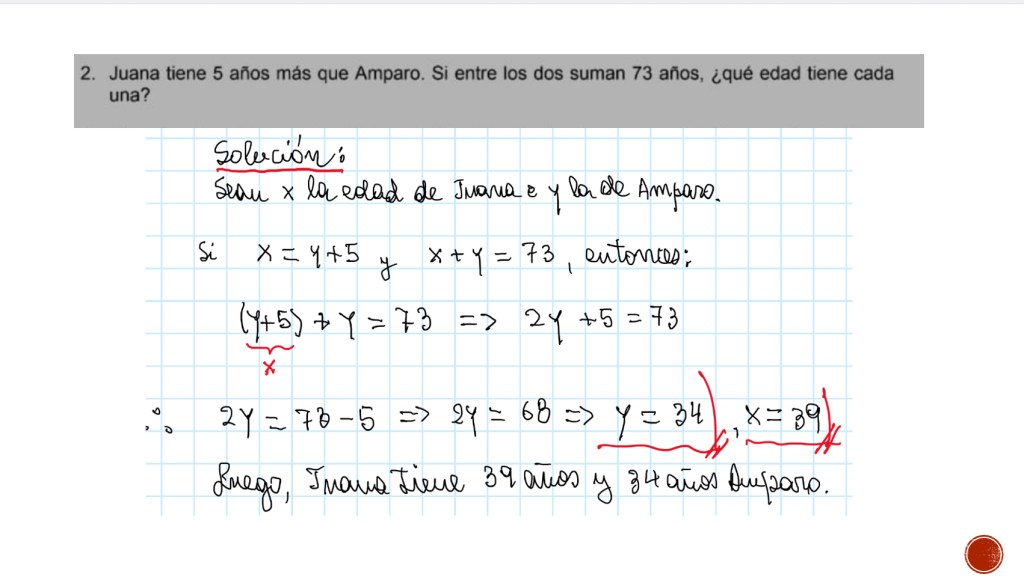 2. Juana tiene 5 años más que Amparo. Si entre los dos suman 73 años, ¿qué edad tiene cada
una?
Solución:
Sean x la edad de Juana e y la de Amparo.
Si x = y+5 y x + y = 73, entonces:
(y+5) + y = 73 => 2y + 5 = 73
x
∴ 2y = 73 - 5 => 2y = 68 => y = 34, x = 39
Luego, Juana tiene 39 años y 34 años Amparo.